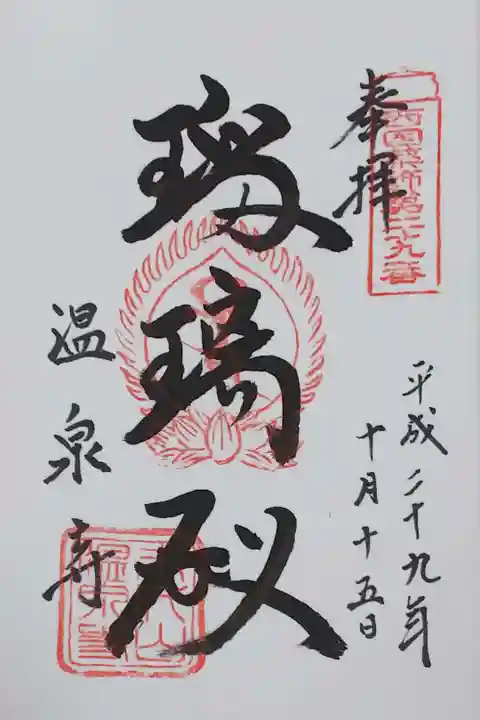 奉拝
西国薬師第二十九番
平成二十九年
十月十五日
瑠璃殿
温泉寺